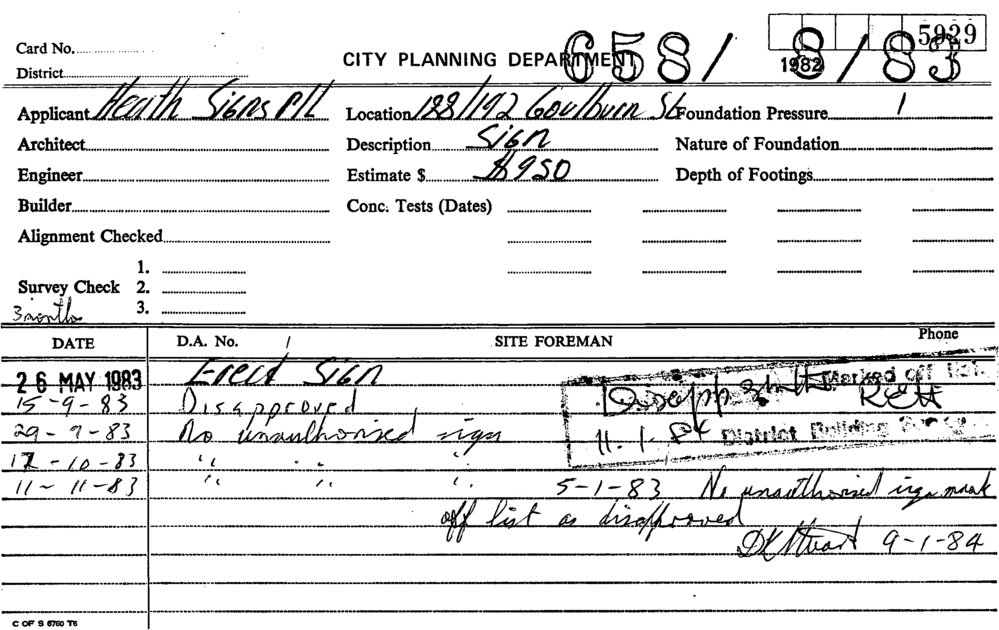 5929
658/8/83
1982
Card No.
District
CITY PLANNING DEPARTMENT
Applicant Heath Signs P/L
Location 188/192 Goulburn St
Foundation Pressure
Architect
Description Sign
Nature of Foundation
Engineer
Estimate $ $950
Depth of Footings
Builder
Conc. Tests (Dates)
Alignment Checked
1.
Survey Check 2.
3.
3 months
DATE D.A. No. SITE FOREMAN Phone
26 MAY 1983 Erect Sign
15-9-83 Disapproved
29-9-83 No unauthorised sign
12-10-83 " " "
11-11-83 " " " 5-1-83 No unauthorised sign mark
off list as disapproved
9-1-84
Marked off list.
Disapp
REH
11.1.84 District Building
C OF S 6760 T6